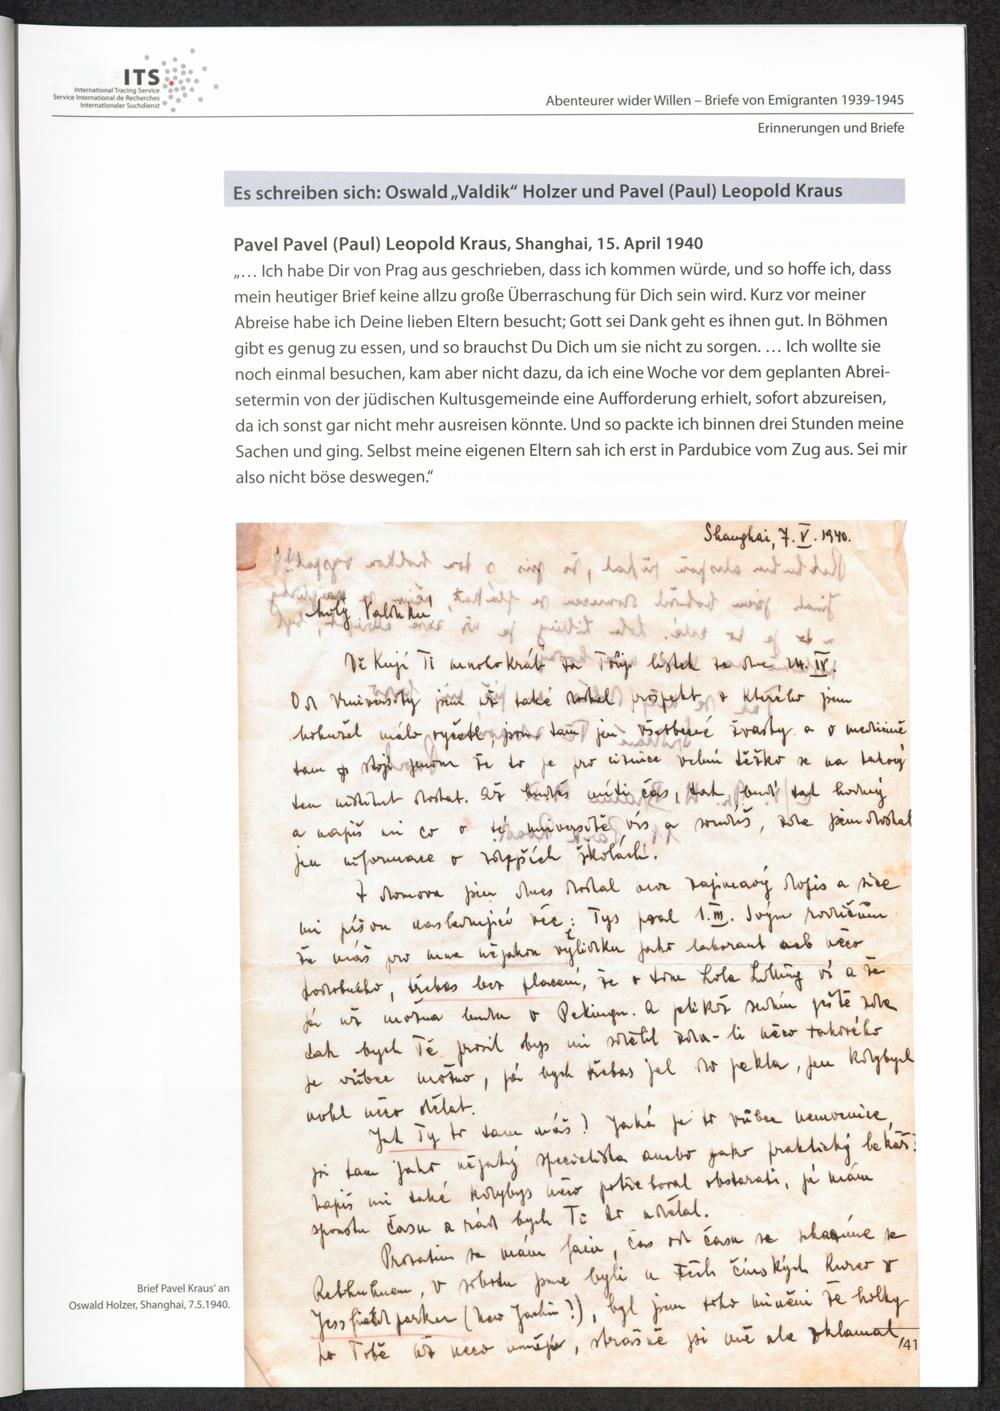 ITS
International Tracing Service
Service International de Recherches
Internationaler Suchdienst
Abenteurer wider Willen – Briefe von Emigranten 1939-1945
Erinnerungen und Briefe
Es schreiben sich: Oswald „Valdik“ Holzer und Pavel (Paul) Leopold Kraus
Pavel Pavel (Paul) Leopold Kraus, Shanghai, 15. April 1940
„… Ich habe Dir von Prag aus geschrieben, dass ich kommen würde, und so hoffe ich, dass
mein heutiger Brief keine allzu große Überraschung für Dich sein wird. Kurz vor meiner
Abreise habe ich Deine lieben Eltern besucht; Gott sei Dank geht es ihnen gut. In Böhmen
gibt es genug zu essen, und so brauchst Du Dich um sie nicht zu sorgen. … Ich wollte sie
noch einmal besuchen, kam aber nicht dazu, da ich eine Woche vor dem geplanten Abrei-
setermin von der jüdischen Kultusgemeinde eine Aufforderung erhielt, sofort abzureisen,
da ich sonst gar nicht mehr ausreisen könnte. Und so packte ich binnen drei Stunden meine
Sachen und ging. Selbst meine eigenen Eltern sah ich erst in Pardubice vom Zug aus. Sei mir
also nicht böse deswegen.“
Shanghai, 7. V. 1940.
Milý Valdíku
Děkuji Ti mnohokrát za Tvůj lístek ze dne 24. IV.
Od University jsem už také dostal prospekt z kterého jsem
bohužel málo vyčetl, jsou tam jen všeobecné žvasty a o medicině
tam stojí jenom že to je pro cizince velmi těžko se na takový
ten institut dostat. Až budeš míti čas, tak buď tak hodný
a napiš mi co o té universitě víš a soudíš, zde jsem dostal
jen informace o zdejších školách.
Z domova jsem dnes dostal zajímavý dopis a sice
mi píšou následující věc: Tys psal 1. III. Svým rodičům
že máš pro mne nějakou vyhlídku jako laborant neb něco
podobného, třebas bez placení, že o tom Lola ví a že
já už možná budu v Pekingu. A jelikož sedím ještě zde
tak bych Tě prosil abys mi sdělil zda-li něco takového
je vůbec možno, já bych třebas jel do pekla, jen kdybych
mohl něco dělat.
Jak Ty to tam máš? Jaká je to vůbec nemocnice,
jsi tam jako nějaký specialista anebo jako praktický lekář?
Napiš mi také kdybys něco potřeboval obstarati, já mám
spoustu času a rád bych Ti to udělal.
Prozatím se mám fain, čas od času se scházíme s
Rebhuhnem, v sobotu jsme byli u čínských kurev v
Jessfield parku (New Jackie?), byl jsem toho mínění že holky
po Tobě už něco umějí, strašně jsi mě ale zklamal,
Brief Pavel Kraus' an
Oswald Holzer, Shanghai, 7.5.1940.
/41